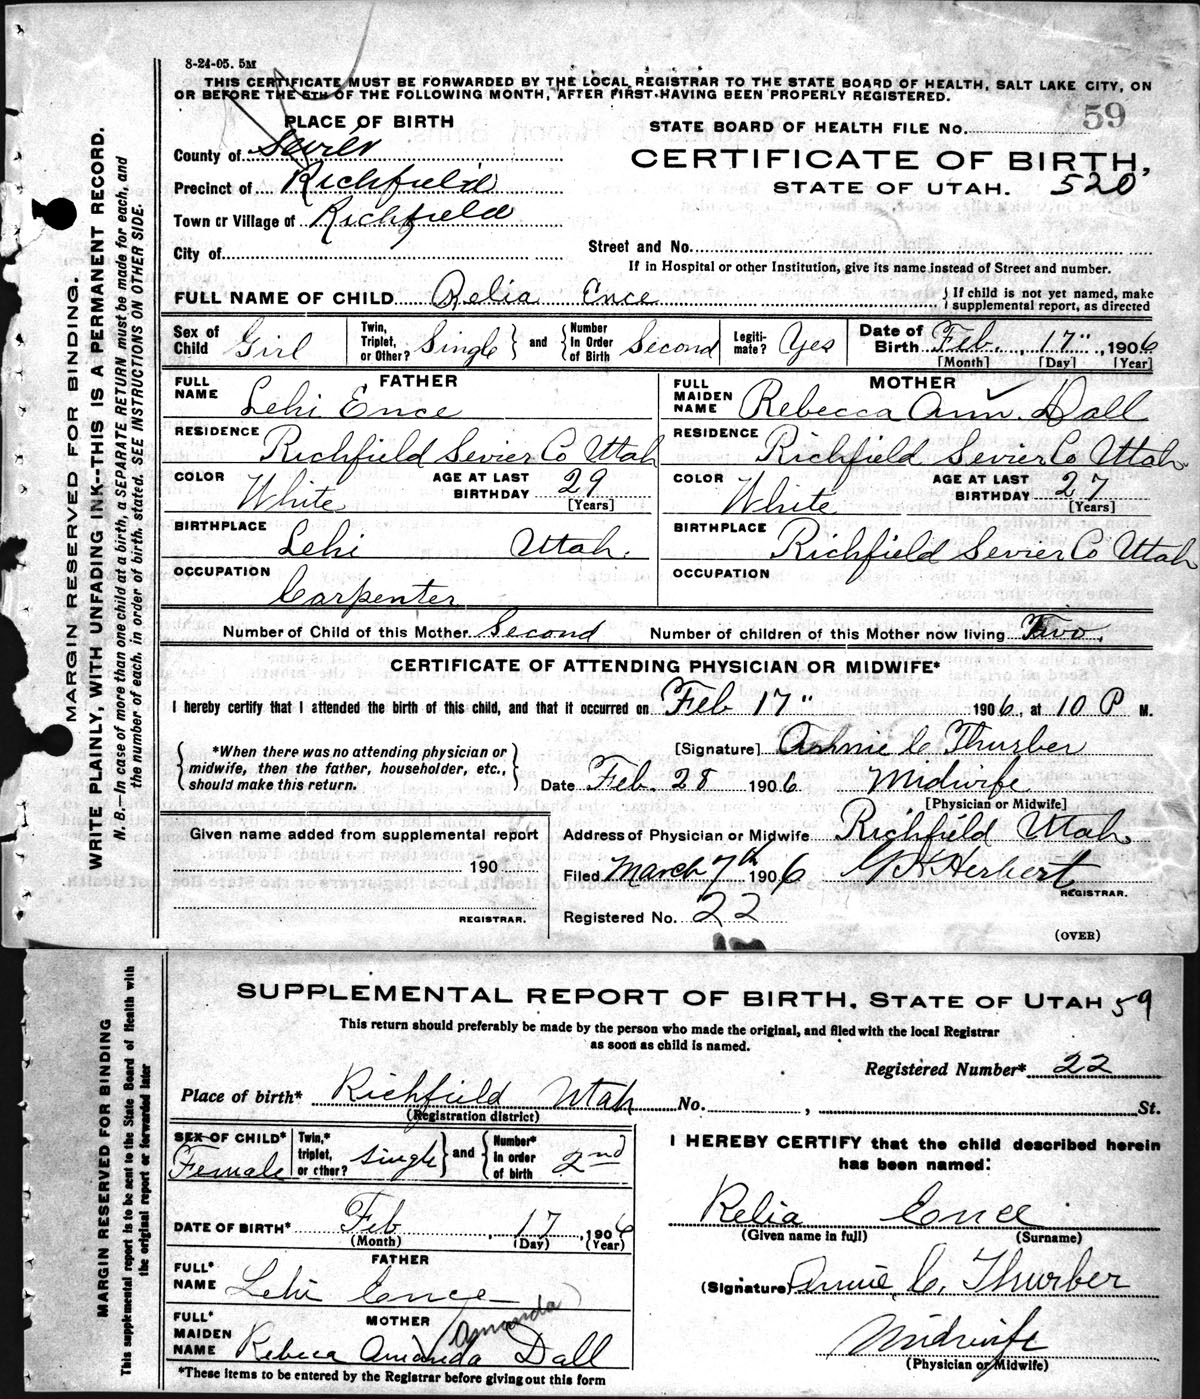 8-24-05. 5M
THIS CERTIFICATE MUST BE FORWARDED BY THE LOCAL REGISTRAR TO THE STATE BOARD OF HEALTH, SALT LAKE CITY, ON
OR BEFORE THE 5TH OF THE FOLLOWING MONTH, AFTER FIRST HAVING BEEN PROPERLY REGISTERED.
MARGIN RESERVED FOR BINDING.
WRITE PLAINLY, WITH UNFADING INK--THIS IS A PERMANENT RECORD.
N. B.—In case of more than one child at a birth, a SEPARATE RETURN must be made for each, and
the number of each, in order of birth, stated. SEE INSTRUCTIONS ON OTHER SIDE.
PLACE OF BIRTH
STATE BOARD OF HEALTH FILE No. 59
County of Sevier
CERTIFICATE OF BIRTH,
Precinct of Richfield
STATE OF UTAH. 520
Town or Village of Richfield
City of
Street and No.
If in Hospital or other Institution, give its name instead of Street and number.
FULL NAME OF CHILD Relia Ence
If child is not yet named, make
supplemental report, as directed
Sex of Child Girl Twin, Triplet, or Other? Single and Number In Order of Birth Second Legiti-mate? Yes Date of Birth Feb. 17", 1906
[Month] [Day] [Year]
FATHER MOTHER
FULL NAME Lehi Ence FULL MAIDEN NAME Rebecca Ann Dall
RESIDENCE Richfield Sevier Co Utah RESIDENCE Richfield Sevier Co Utah.
COLOR White AGE AT LAST BIRTHDAY 29 [Years] COLOR White AGE AT LAST BIRTHDAY 27 [Years]
BIRTHPLACE Lehi Utah. BIRTHPLACE Richfield Sevier Co Utah
OCCUPATION Carpenter OCCUPATION
Number of Child of this Mother Second Number of children of this Mother now living Two.
CERTIFICATE OF ATTENDING PHYSICIAN OR MIDWIFE*
I hereby certify that I attended the birth of this child, and that it occurred on Feb 17" 1906, at 10 P M.
*When there was no attending physician or
midwife, then the father, householder, etc.,
should make this return.
[Signature] Annie C Thurber
Date Feb. 28 1906 Midwife
[Physician or Midwife]
Given name added from supplemental report
190
REGISTRAR.
Address of Physician or Midwife Richfield Utah
Filed March 7th 1906 G H Herbert
REGISTRAR.
Registered No. 22
(OVER)
MARGIN RESERVED FOR BINDING
This supplemental report is to be sent to the State Board of Health with
the original report or forwarded later
SUPPLEMENTAL REPORT OF BIRTH. STATE OF UTAH 59
This return should preferably be made by the person who made the original, and filed with the local Registrar
as soon as child is named.
Registered Number* 22
Place of birth* Richfield Utah No. , St.
(Registration district)
SEX OF CHILD* Female Twin,* triplet, or other? Single and Number* In order of birth 2nd
DATE OF BIRTH* Feb 17, 1906
(Month) (Day) (Year)
FATHER
FULL* NAME Lehi Ence
MOTHER
Amanda
FULL* MAIDEN NAME Rebeca Amanda Dall
*These items to be entered by the Registrar before giving out this form
I HEREBY CERTIFY that the child described herein
has been named:
Relia Ence
(Given name in full) (Surname)
(Signature) Annie C. Thurber
Midwife
(Physician or Midwife)